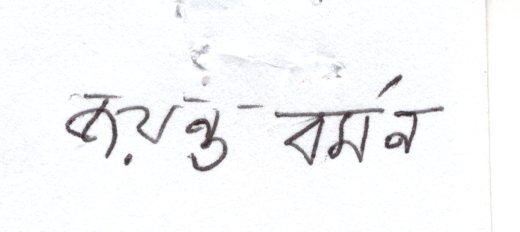 জয়ন্ত বর্মন